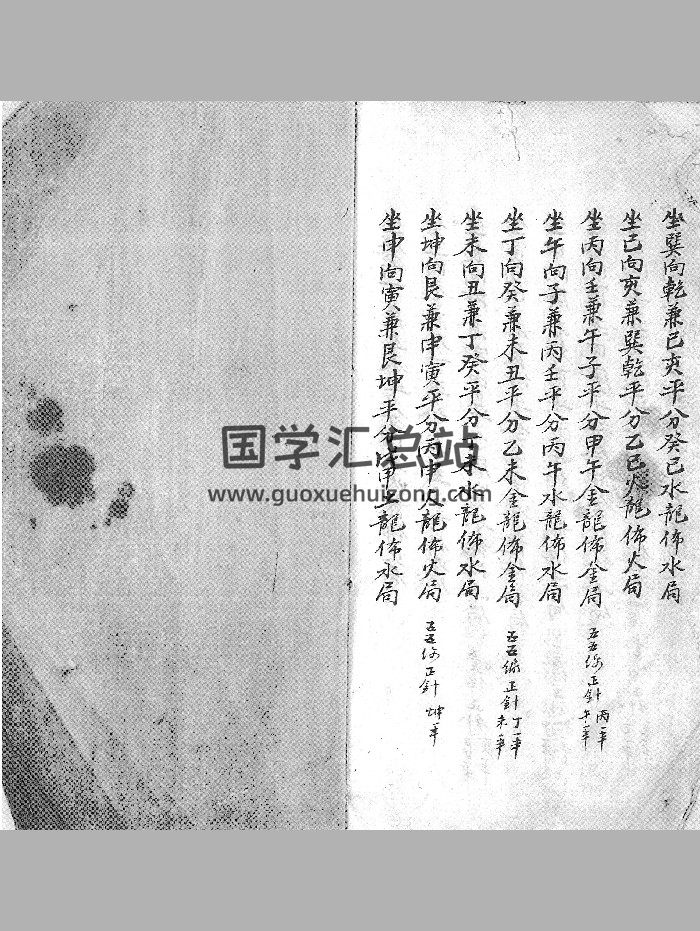 坐巽向乾兼巳亥平分癸巳水龍佈水局
坐巳向亥兼巽乾平分乙巳火龍佈火局
坐丙向壬兼午子平分甲午金龍佈金局 五五線正針 丙一半 午一半
坐午向子兼丙壬平分丙午水龍佈水局
坐丁向癸兼未丑平分乙未金龍佈金局 五五線正針 丁一半 未一半
坐未向丑兼丁癸平分丁未水龍佈水局
坐坤向艮兼申寅平分丙申火龍佈火局 五五線正針 坤一半
坐申向寅兼艮坤平分申龍佈水局
国学汇总站
www.guoxuehuizong.com